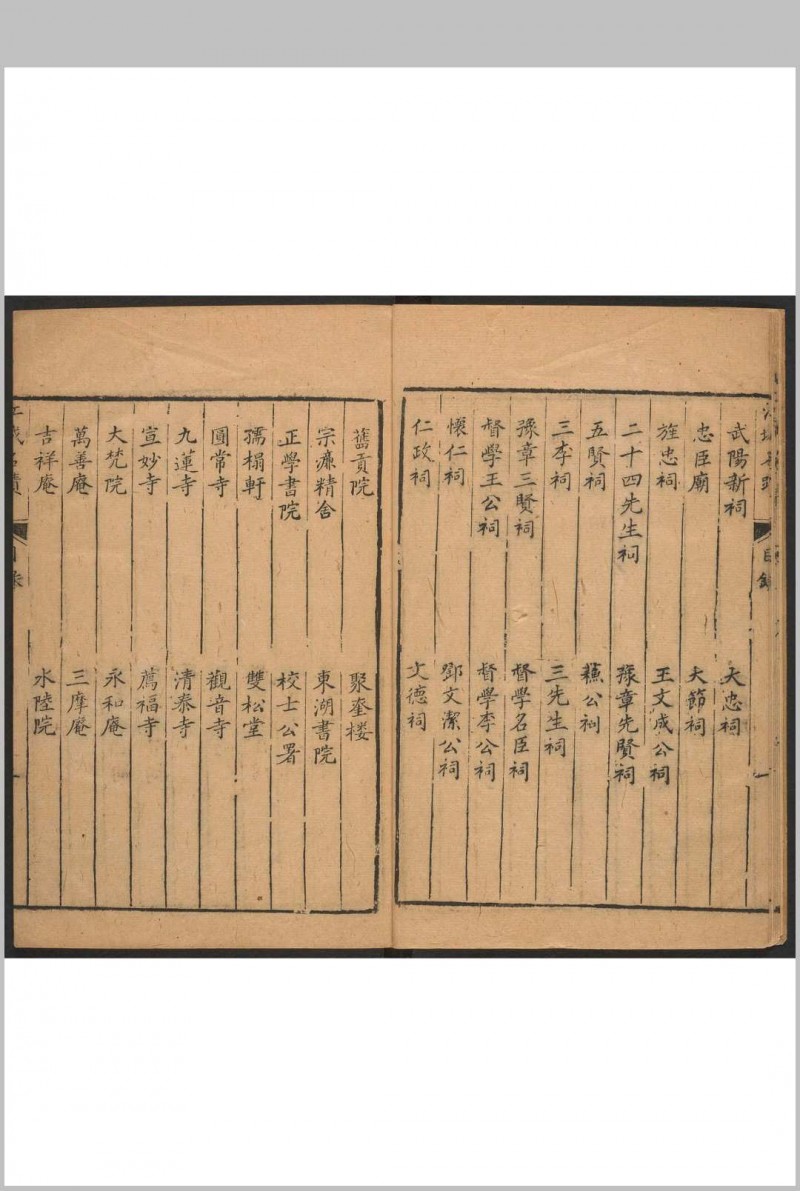 武陽新祠 大忠祠
忠臣廟 大節祠
旌忠祠 王文成公祠
二十四先生祠 豫章先賢祠
五賢祠 蘓公祠
三李祠 三先生祠
豫章三賢祠 督學名臣祠
督學王公祠 督學李公祠
懷仁祠 鄧文潔公祠
仁政祠 文德祠
舊貢院 聚奎楼
宗濂精舍 東湖書院
正學書院 校士公署
孺榻軒 雙松堂
圓常寺 觀音寺
九蓮寺 清泰寺
宣妙寺 薦福寺
大梵院 永和庵
萬善庵 三摩庵
吉祥庵 水陸院